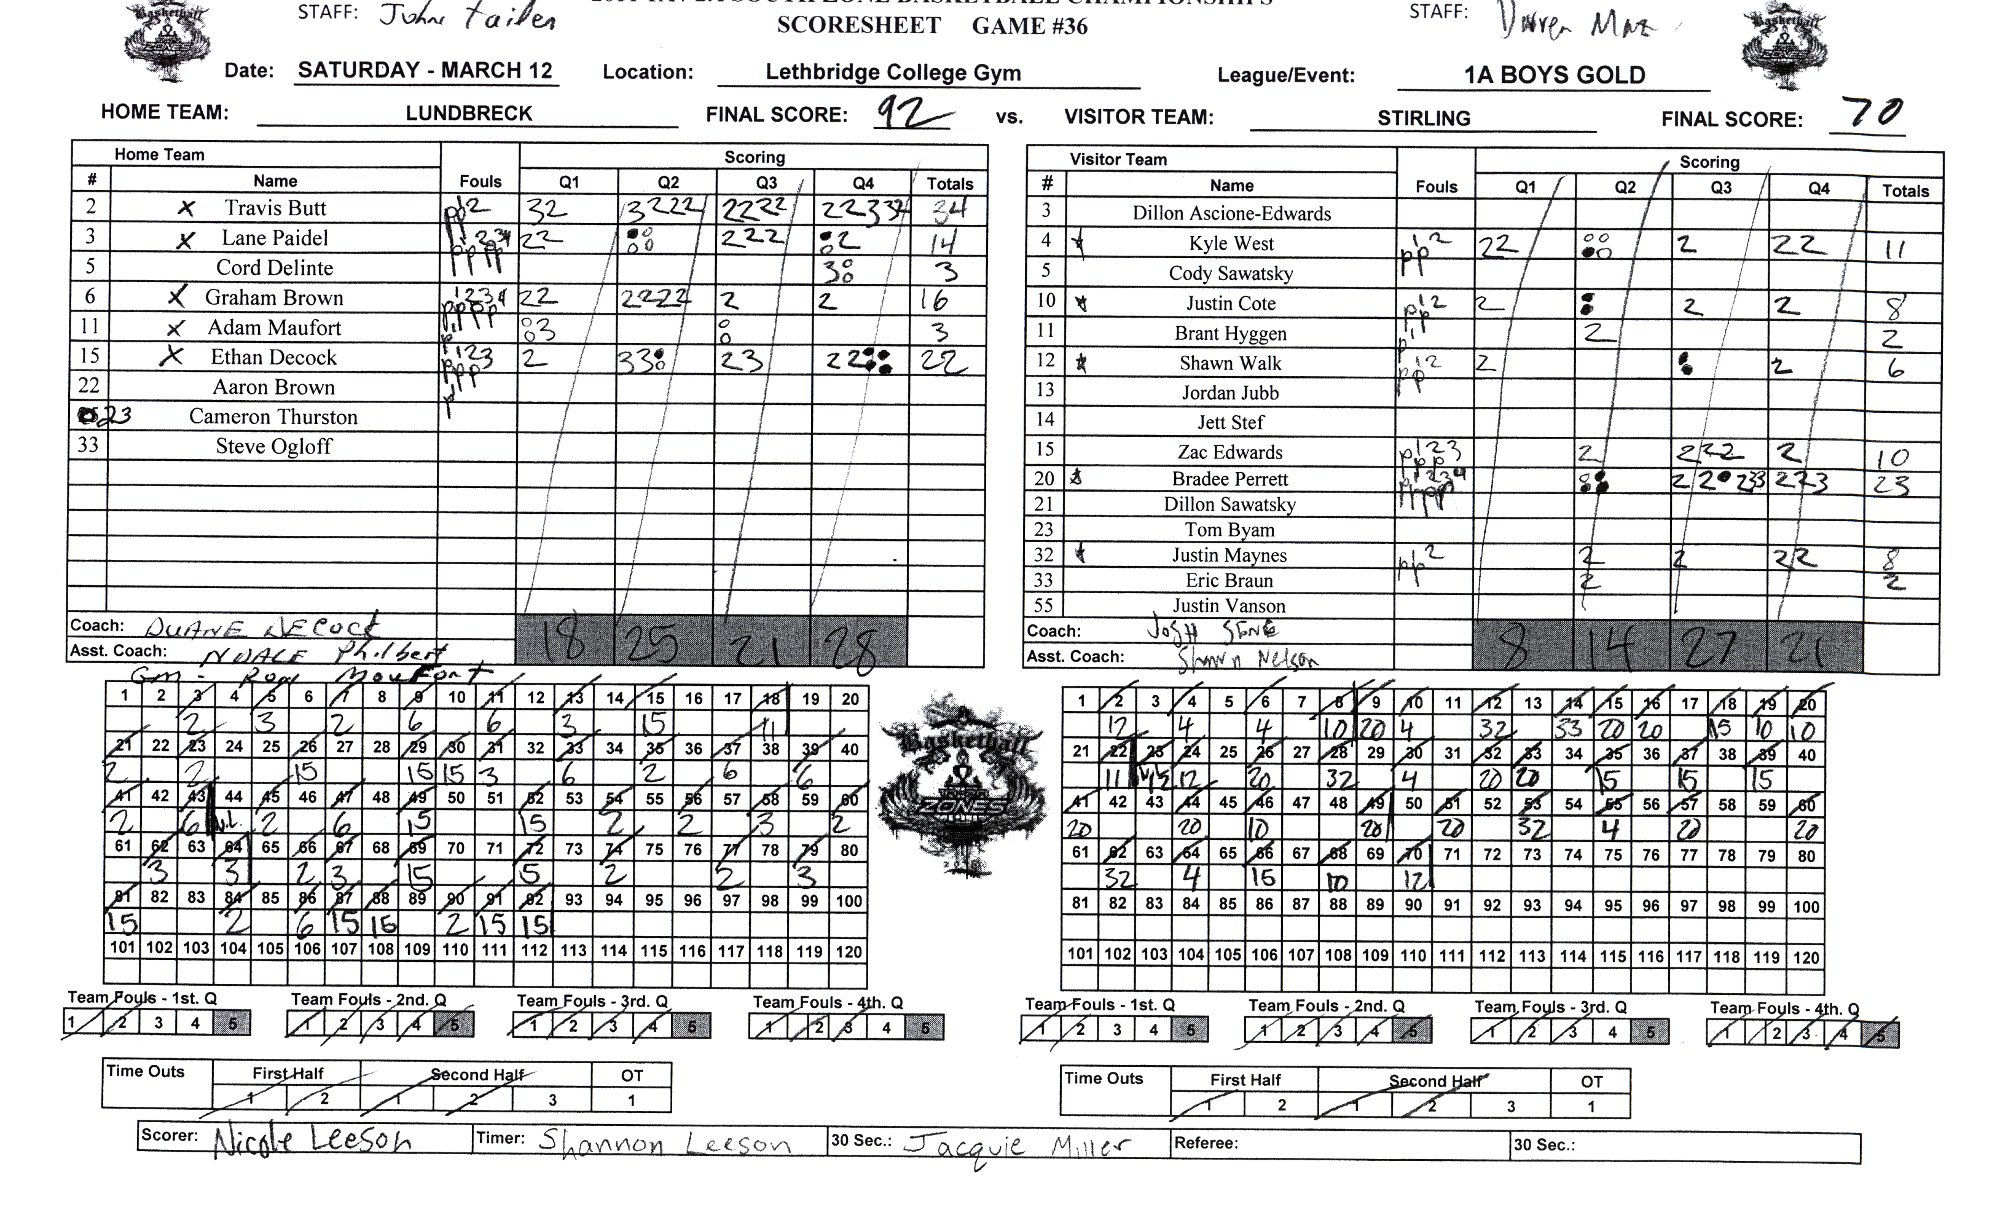 STAFF: John Tailen
SOUTH ZONE BASKETBALL CHAMPIONSHIPS
STAFF: Darren
SCORESHEET GAME #36
Date: SATURDAY - MARCH 12 Location: Lethbridge College Gym League/Event: 1A BOYS GOLD
HOME TEAM: LUNDBRECK FINAL SCORE: 92 vs. VISITOR TEAM: STIRLING FINAL SCORE: 70
Home Team Scoring
# Name Fouls Q1 Q2 Q3 Q4 Totals
2 X Travis Butt pp12 32 3222 2222 22332 34
3 X Lane Paidel pppp1234 22 222 2 14
5 Cord Delinte 3 3
6 X Graham Brown pppp1234 22 2222 2 2 16
11 X Adam Maufort p1 3 3
15 X Ethan Decock ppp123 2 33 23 22 22
22 Aaron Brown p1
23 Cameron Thurston
33 Steve Ogloff
Coach: DUANE DECOCK 18 25 21 28
Asst. Coach: Philbert
Gm - Ron Moufort
Visitor Team Scoring
# Name Fouls Q1 Q2 Q3 Q4 Totals
3 Dillon Ascione-Edwards
4 Kyle West pp12 22 2 22 11
5 Cody Sawatsky
10 Justin Cote pp12 2 2 2 8
11 Brant Hyggen p1 2 2
12 Shawn Walk pp12 2 2 6
13 Jordan Jubb
14 Jett Stef
15 Zac Edwards ppp123 2 222 2 10
20 Bradee Perrett pppp1234 22 233 223 23
21 Dillon Sawatsky
23 Tom Byam
32 Justin Maynes pp12 2 2 22 8
33 Eric Braun 2 2
55 Justin Vanson
Coach: JOSH SENE 8 14 27 21
Asst. Coach: Shawn Nelson
1 2 3 4 5 6 7 8 9 10 11 12 13 14 15 16 17 18 19 20
2 3 2 6 6 3 15 11
21 22 23 24 25 26 27 28 29 30 31 32 33 34 35 36 37 38 39 40
2 2 15 15 15 3 6 2 6 6
41 42 43 44 45 46 47 48 49 50 51 52 53 54 55 56 57 58 59 60
2 6 2 6 15 15 2 2 3 2
61 62 63 64 65 66 67 68 69 70 71 72 73 74 75 76 77 78 79 80
3 3 2 3 15 5 2 2 3
81 82 83 84 85 86 87 88 89 90 91 92 93 94 95 96 97 98 99 100
15 2 6 15 15 2 15 15
101 102 103 104 105 106 107 108 109 110 111 112 113 114 115 116 117 118 119 120
Basketball
ZONES
1 2 3 4 5 6 7 8 9 10 11 12 13 14 15 16 17 18 19 20
12 4 4 10 20 4 32 33 20 20 15 10 10
21 22 23 24 25 26 27 28 29 30 31 32 33 34 35 36 37 38 39 40
11 12 12 20 32 4 20 20 15 15 15
41 42 43 44 45 46 47 48 49 50 51 52 53 54 55 56 57 58 59 60
20 20 10 20 20 32 4 20 20
61 62 63 64 65 66 67 68 69 70 71 72 73 74 75 76 77 78 79 80
32 4 15 10 12
81 82 83 84 85 86 87 88 89 90 91 92 93 94 95 96 97 98 99 100
101 102 103 104 105 106 107 108 109 110 111 112 113 114 115 116 117 118 119 120
Team Fouls - 1st. Q Team Fouls - 2nd. Q Team Fouls - 3rd. Q Team Fouls - 4th. Q
1 2 3 4 5 1 2 3 4 5 1 2 3 4 5 1 2 3 4 5
Team Fouls - 1st. Q Team Fouls - 2nd. Q Team Fouls - 3rd. Q Team Fouls - 4th. Q
1 2 3 4 5 1 2 3 4 5 1 2 3 4 5 1 2 3 4 5
Time Outs First Half Second Half OT
1 2 1 2 3 1
Time Outs First Half Second Half OT
1 2 1 2 3 1
Scorer: Nicole Leeson Timer: Shannon Leeson 30 Sec.: Jacquie Miller Referee: 30 Sec.: